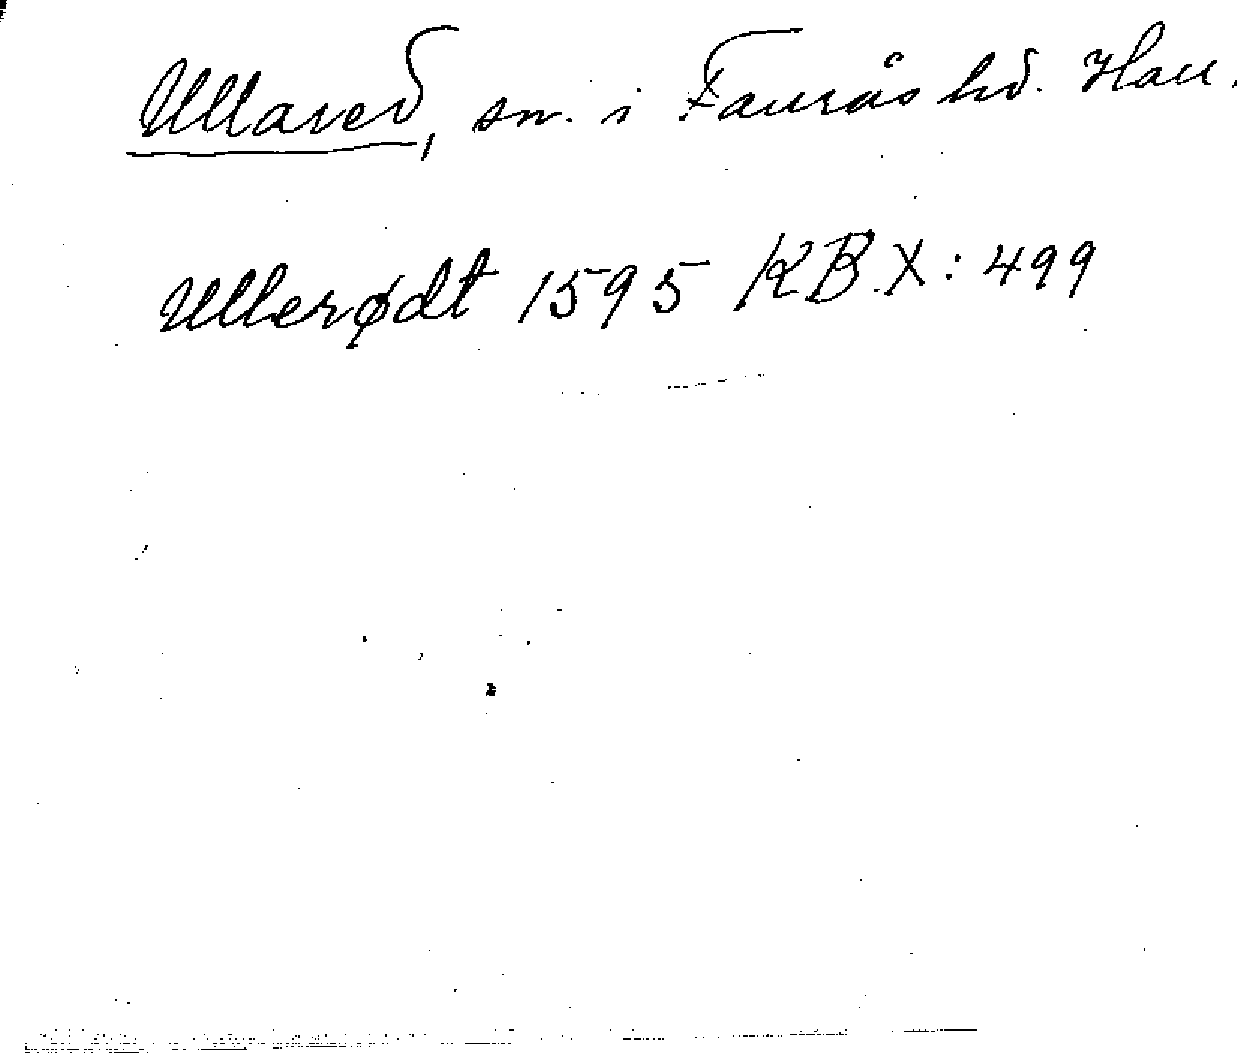 Ullared, sn. i Faurås hd. Hall.
Ullerødt 1595 KB.X: 499